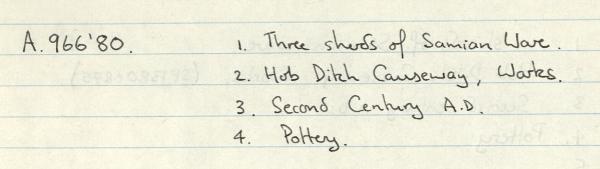 A.966'80. 1. Three sherds of Samian Ware.
2. Hob Ditch Causeway, Warks.
3. Second Century A.D.
4. Pottery.